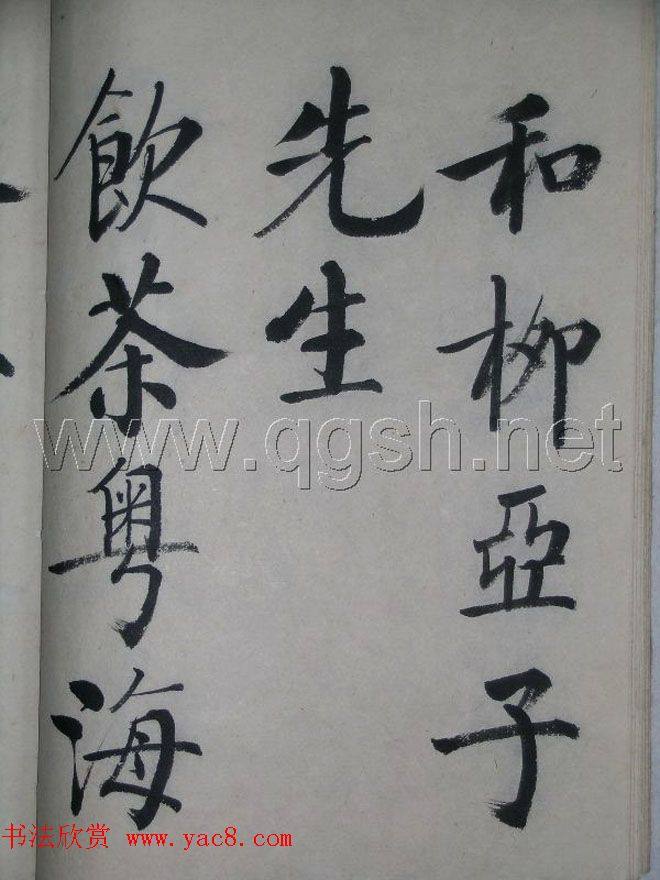 和柳亞子
先生
飲茶粵海
www.qgsh.net
书法欣赏 www.yac8.com